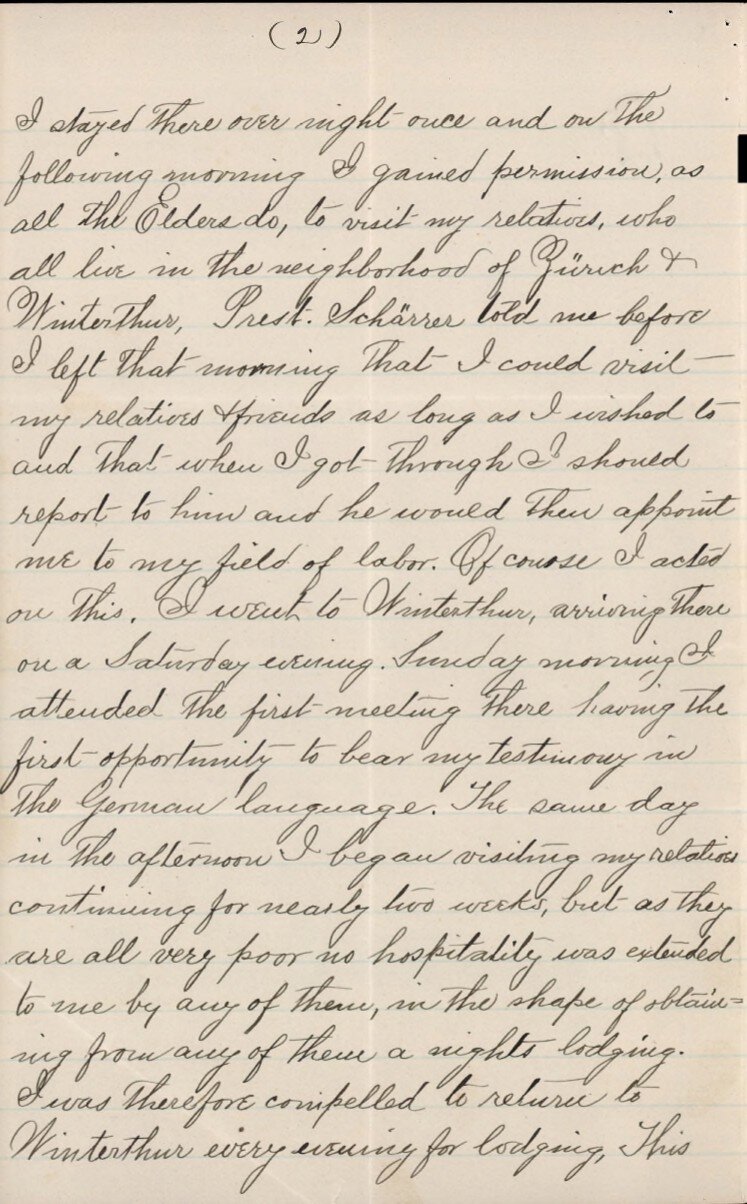 (2)
I stayed there over night once and on the
following morning I gained permission, as
all the Elders do, to visit my relatives, who
all live in the neighborhood of Zürich &
Winterthur, Prest. Schärrer told me before
I left that morning that I could visit
my relatives & friends as long as I wished to
and that when I got through I should
report to him and he would then appoint
me to my field of labor. Of course I acted
on this. I went to Winterthur, arriving there
on a Saturday evening. Sunday morning I
attended the first meeting there having the
first opportunity to bear my testimony in
the German language. The same day
in the afternoon I began visiting my relatives
continuing for nearly two weeks, but as they
are all very poor no hospitality was extended
to me by any of them, in the shape of obtain=
ing from any of them a nights lodging.
I was therefore compelled to return to
Winterthur every evening for lodging, This